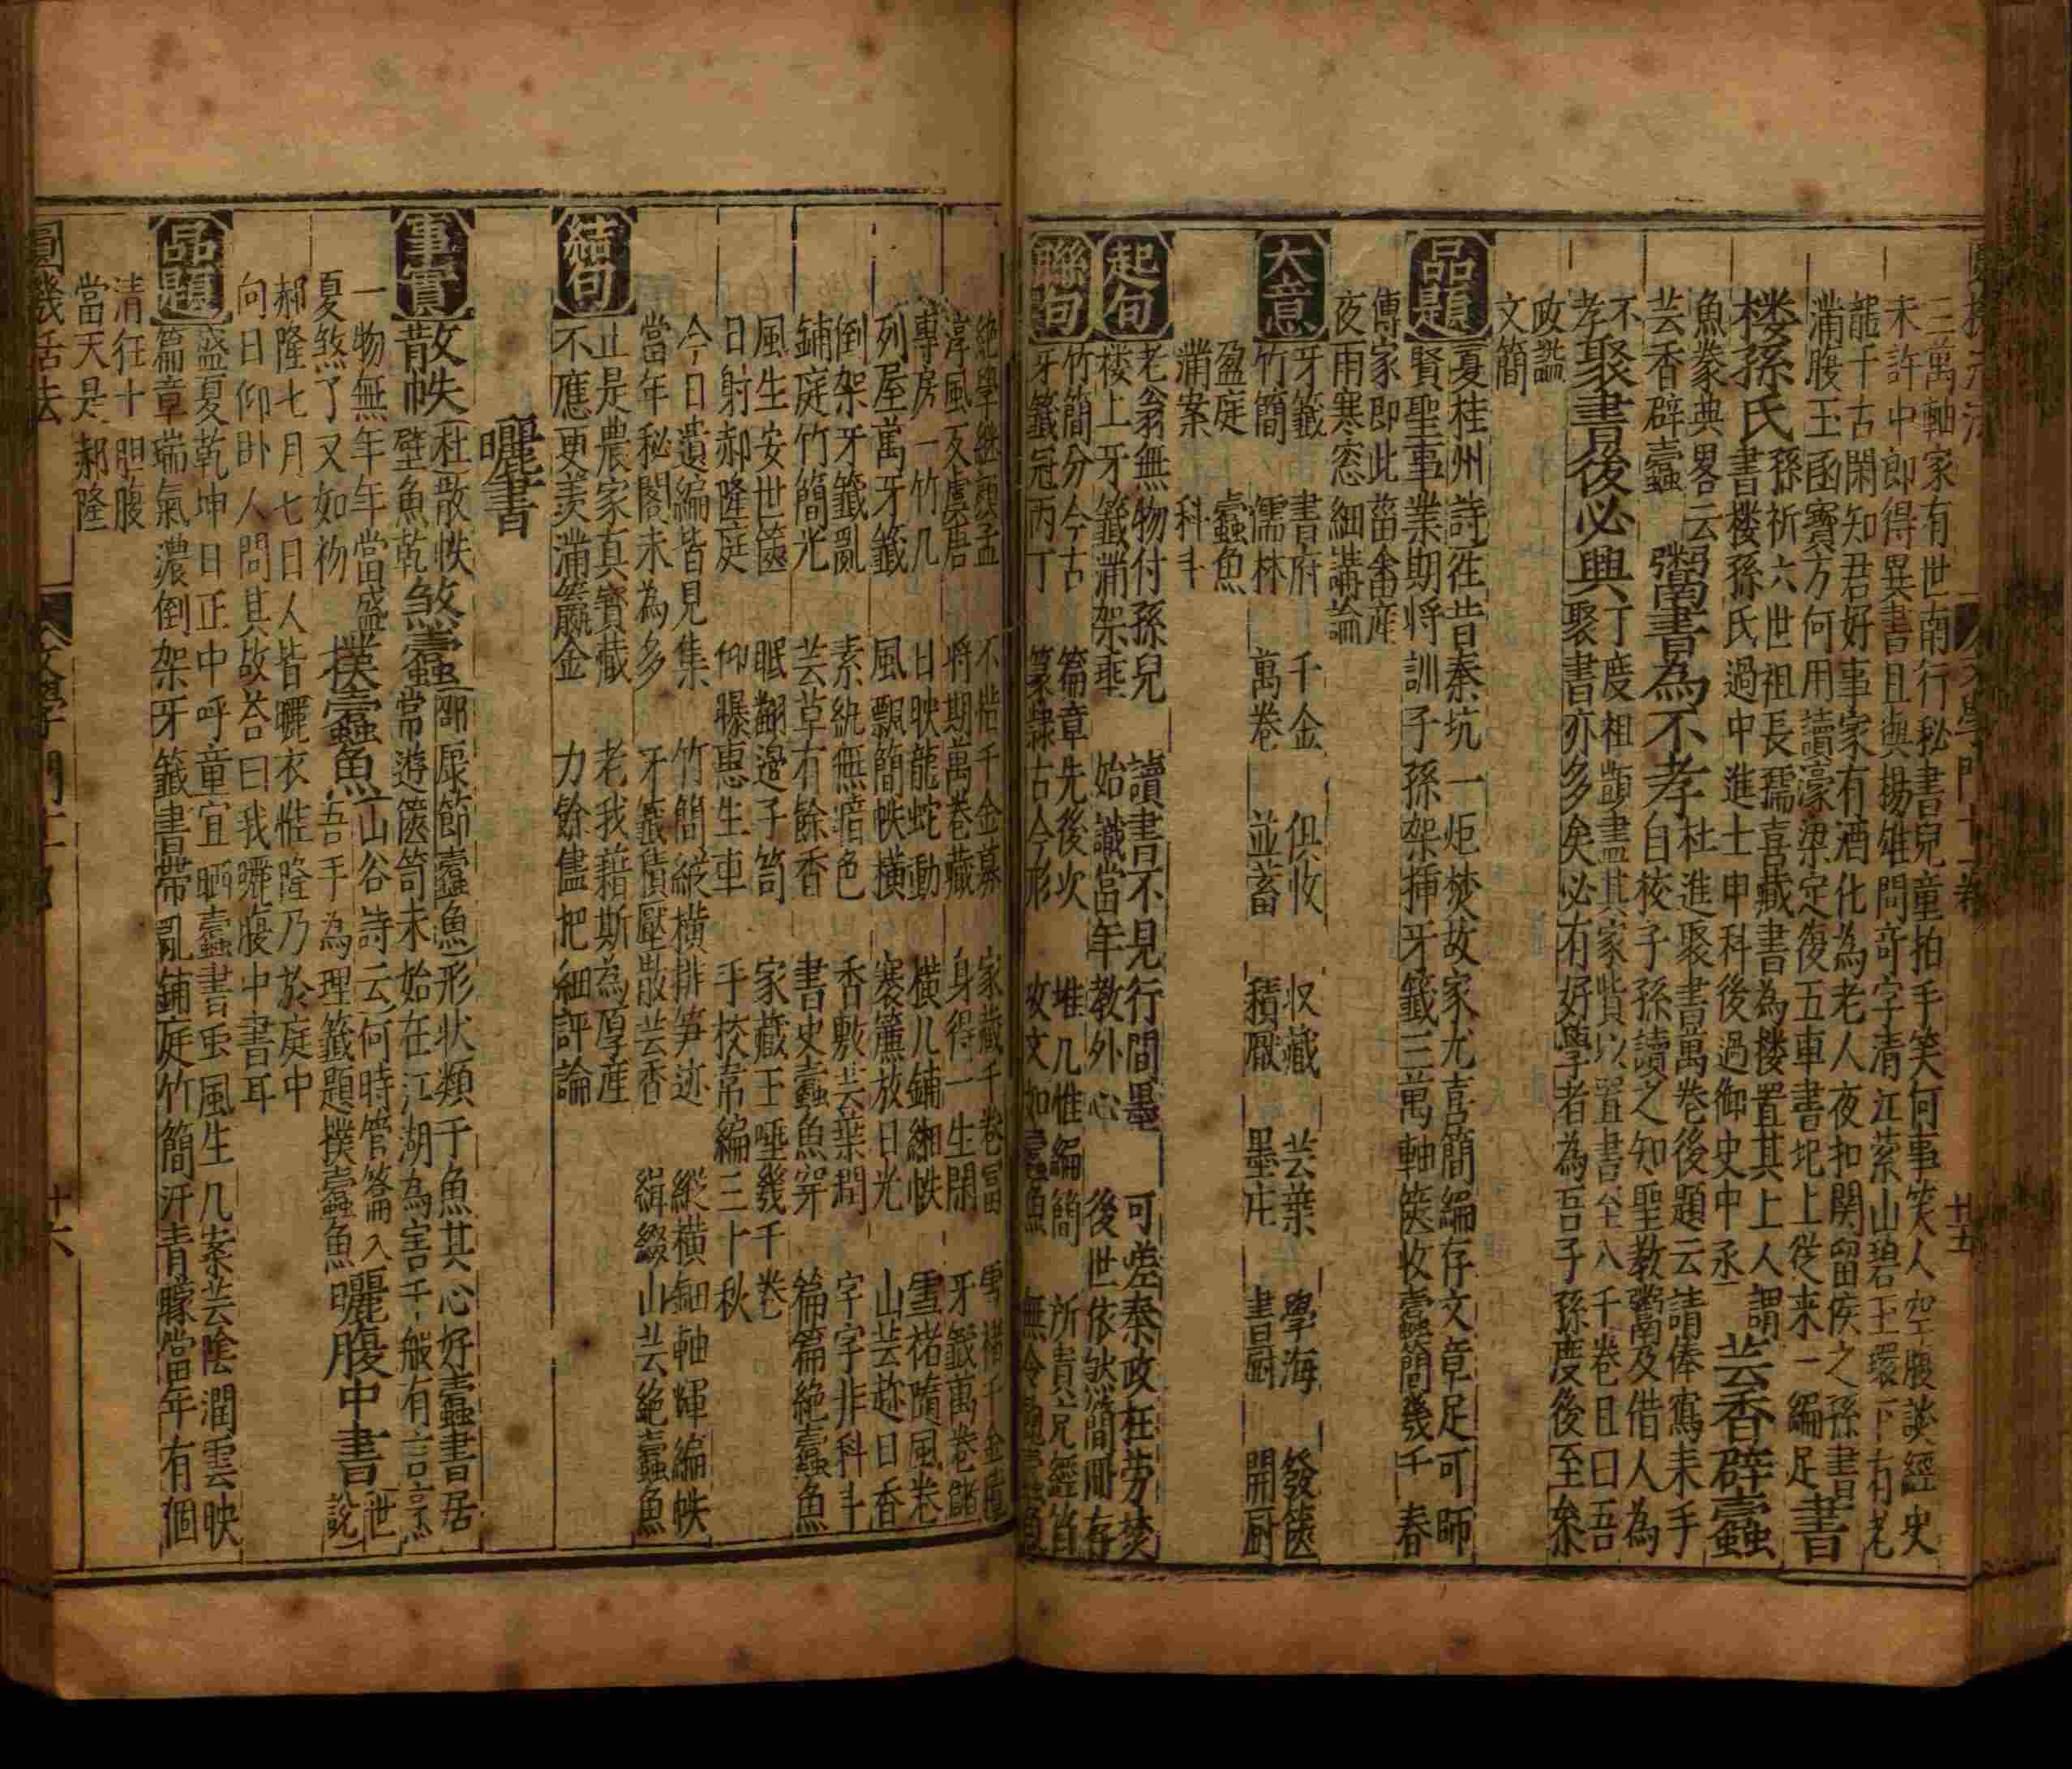 三萬軸家有世南行秘書兒童拍手笑何事笑人空腹談經史
未許中郎得異書且與揚雄問奇字清江縈山碧玉環下有老
龍千古閑知君好事家有酒化為老人夜扣関留侯之孫書
滿腹玉函寶方何用讀濠梁定復五車書圯上從来一編足書
楼孫氏孫祈六世祖長孺喜藏書為楼置其上人謂
書楼孫氏過中進士申科後過御史中丞芸香辟蠧
魚豢典畧云
芸香辟蠧
鬻書為不孝杜進聚書萬卷後題云請俸寫来手
自校子孫讀之知聖教鬻及借人為
不
孝聚書後必興丁度祖顗盡其家貲以置書至八千卷且曰吾
聚書亦多矣必有好學者為吾子孫度後至叅
政謚
文簡
品題
夏桂州詩徃昔秦坑一炬焚故家尤喜簡編存文章足可師
賢聖事業期将訓子孫架挿牙籤三萬軸篋收蠧簡幾千春
傳家即此菑畬産
夜雨寒窓細講論
大意
牙籤 書府 千金 俱收 収藏 芸葉 學海 發篋
竹簡 儒林 萬卷 並蓄 積厥 墨庄 書厨 開厨
盈庭 蠧魚
滿案 科斗
起句
老翁無物付孫兒 讀書不見行間墨 可差秦政枉劳焚
楼上牙籤滿架乘 始識當年教外心 後世依然簡冊存
聯句
竹簡分今古 篇章先後次 堆几惟編簡 所責元經笥
牙籤冠丙丁 篆隷古今形 攻文如蠧魚
絶學継顔孟 不惜千金募 家藏千卷富
淳風反虞唐 将期萬卷藏 身得一生閑 牙籤萬卷儲
專房一竹几 日映龍蛇動 横几鋪緗帙 雪楮隨風卷
列屋萬牙籤 風飄簡帙横 褰簾放日光 山芸趂日香
倒架牙籤亂 素紈無瘖色 香敷芸葉潤 字字非科斗
鋪庭竹簡光 芸草有餘香 書史蠧魚穿 篇篇絶蠧魚
風生安世篋 眠翻邉子笥 家藏王哑幾千卷
日射郝隆庭 仰曝惠生車 手校韋編三十秋
今日遺編皆見集 竹簡縱横排笋迹 縱横鈿軸輝編帙
當年秘閣未為多 牙籤積壓散芸香 緝綴山芸絶蠧魚
結句
止是農家真寳藏 老我藉斯為厚産
不應更羡滿籯金 力餘儘把細評論
曬書
事實
散帙杜散帙
壁魚乾煞蠧邵康節蠧魚形状類于魚其心好蠧書居
常遊篋笥未始在江湖為害千般有言烹
一物無年年當盛
夏煞了又如初撲蠧魚山谷詩云何時管答入
吾手為理籤題撲蠧魚曬腹中書世
說
郝隆七月七日人皆曬衣惟隆乃於庭中
向日仰卧人問其故荅曰我曬腹中書耳
品題
盛夏乾坤日正中呼童宜晒蠧書䖝風生几案芸陰潤雲映
篇章瑞氣濃倒架牙籤書帶亂鋪庭竹簡汗青朦當年有個
清狂士胆腹
當天是郝隆
圓機活法 文學門 廿六